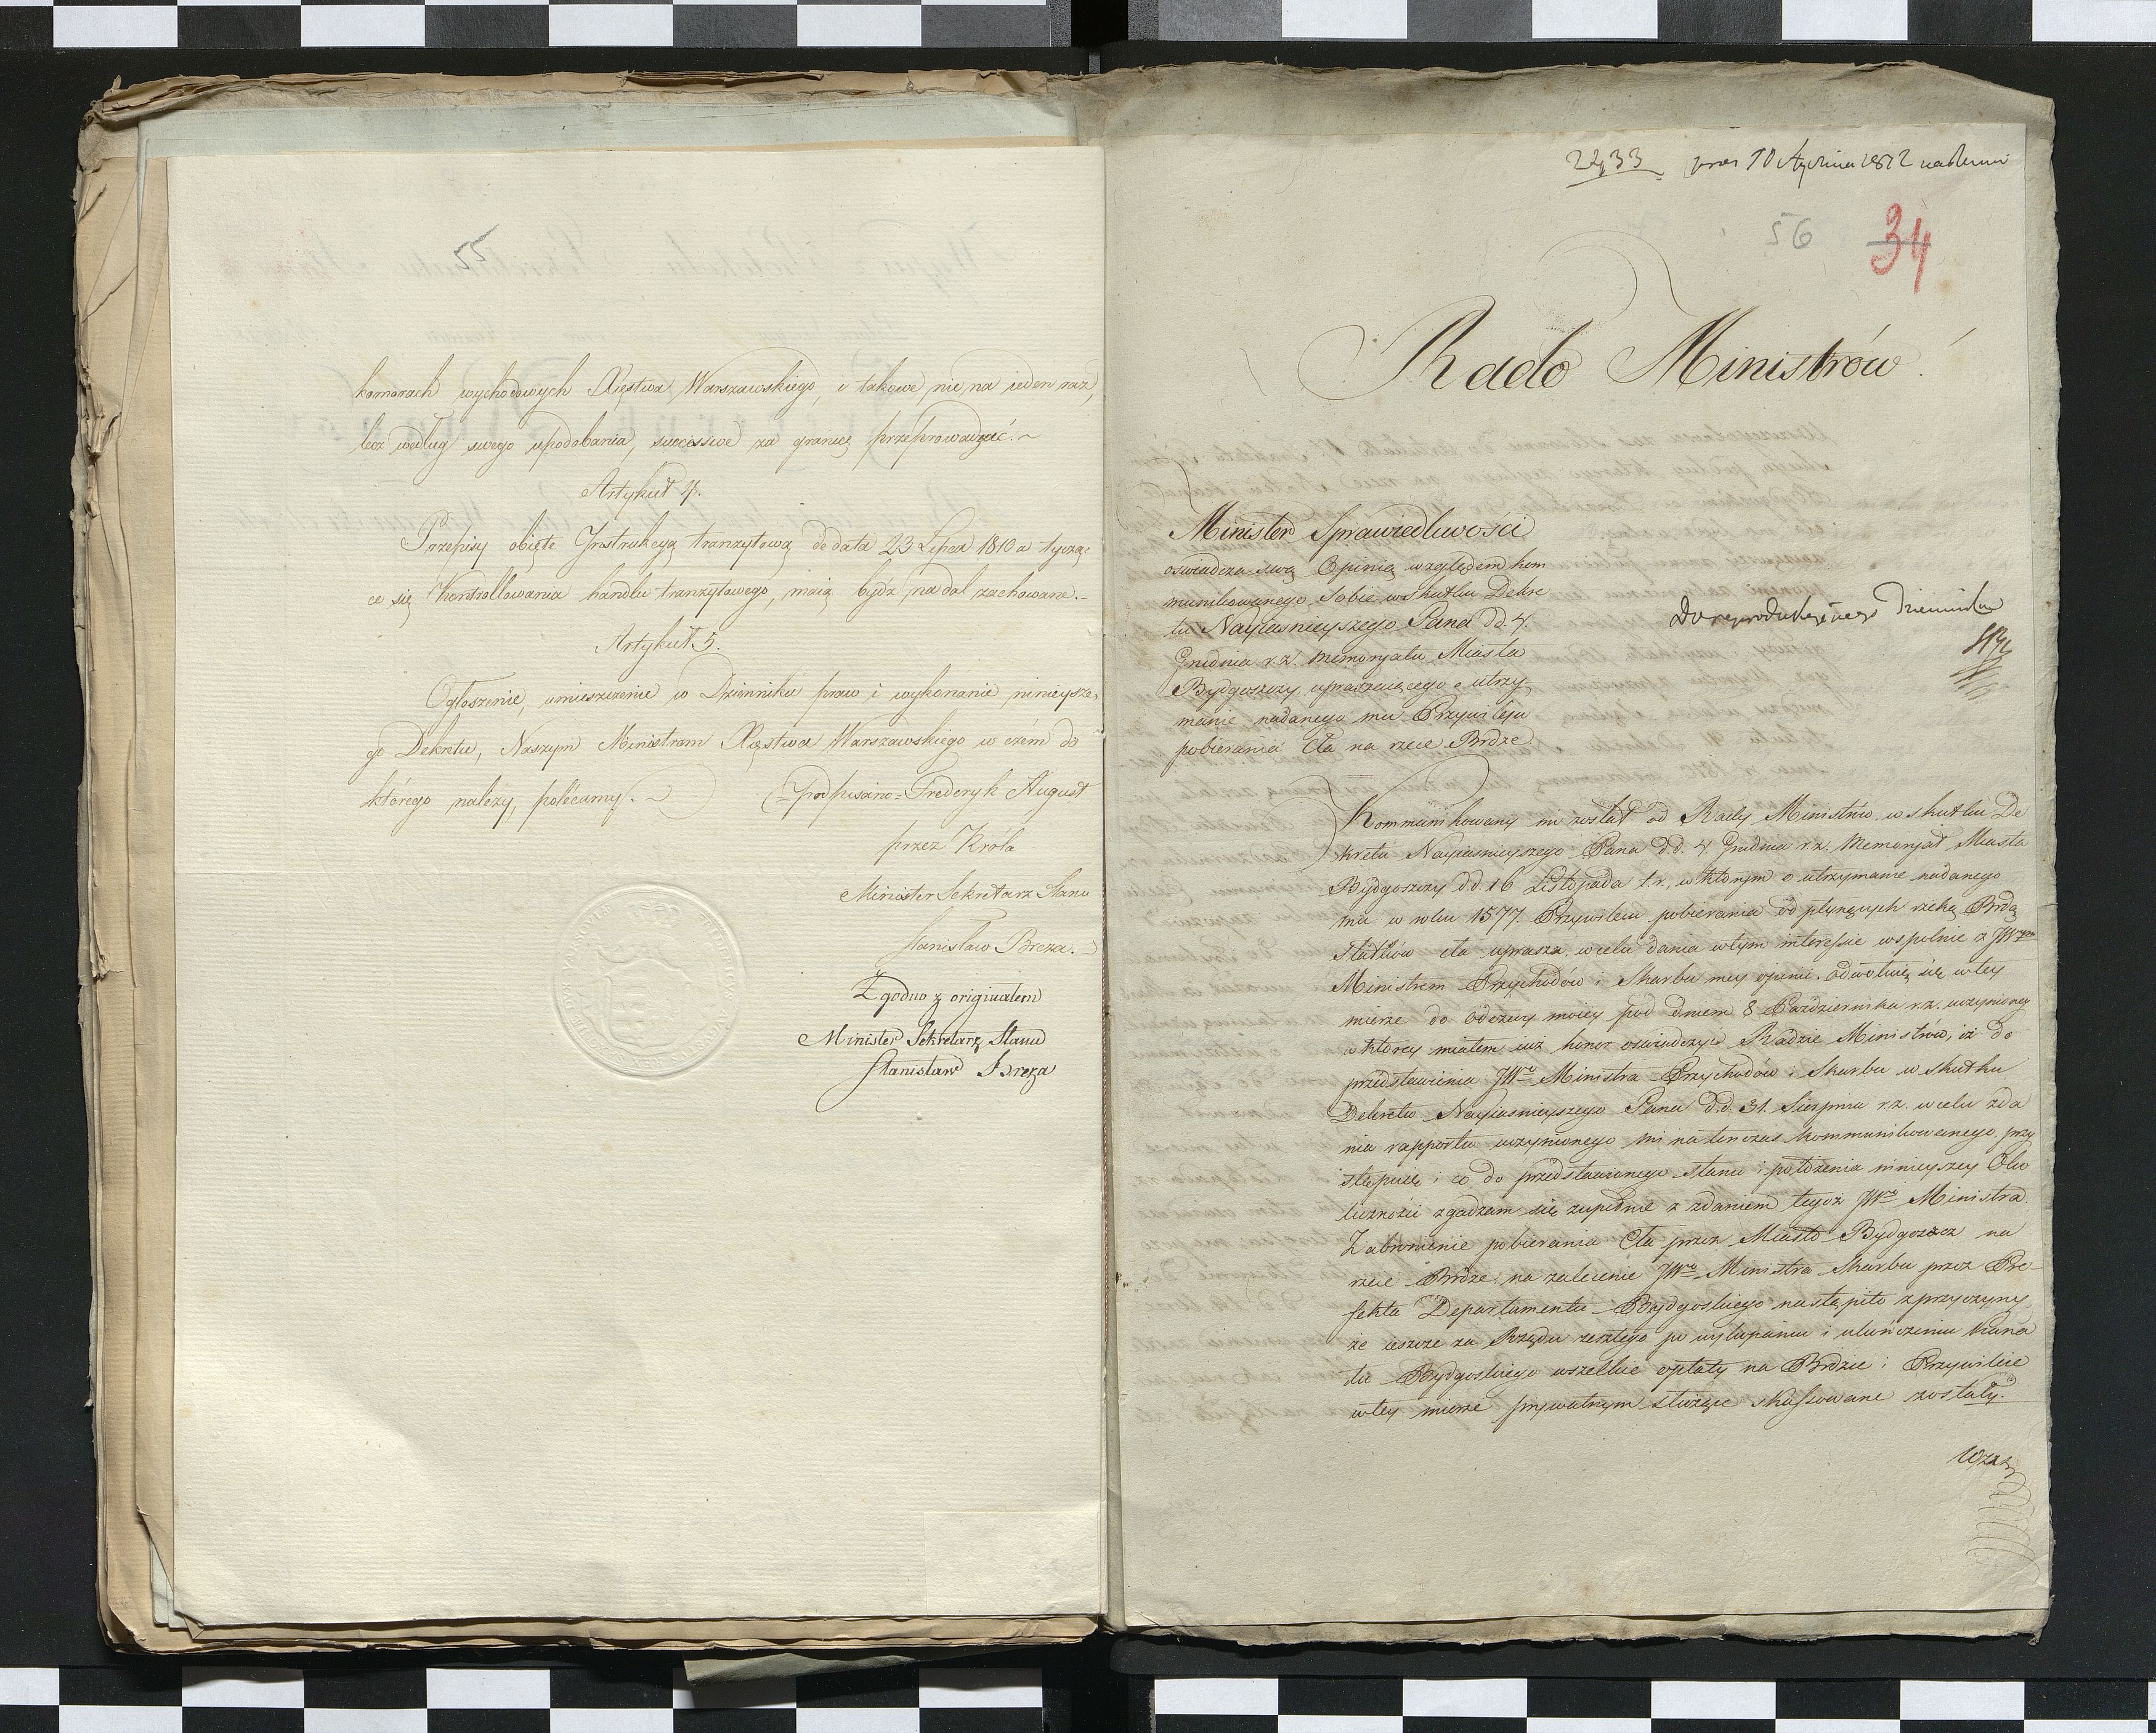 55
komorach wychodowych Xięstwa Warszawskiego, i takowe, nie na ieden raz,
lecz według swego upodobania, successive za granicę przeprowadzać.~
Artykuł 4.
Przepisy obięte Jnstrukcyą tranzytową de data 23 Lipca 1810 a tyczą-
ce się Kontrollowania handlu tranzytowego, maią bydź nadal zachowane.-
Artykuł 5.
Ogłoszenie, umieszczenie w Dzienniku praw i wykonanie ninieysze-
go Dekretu, Naszym Ministrom Xięstwa Warszawskiego w czém do
którego należy, polécamy.~ (=podpisano=Frederyk August
przez Króla
Minister Sekretarz Stanu
Stanisław Breza.
Zgodno z originałem
Minister Sekretarz Stanu
Stanisław Breza
2433 10 Stycznia 1812
56 34
Rado Ministrów!
Minister Sprawiedliwości
oswiadcza swą Opinią względem kom
munikowanego Sobie w skutku Dekre
tu Nayiasnieyszego Pana dd. 4.
Grudnia r.z. Memoryału Miasta
Bydgoszczy upraszaiącego o utrzy
manie nadanego mu Przywileju
pobierania Cła na rzece Brdze
Dziennika
Kommunikowany mi został od Rady Ministrów w skutku De
kretu Nayiasnieyszego Pana dd. 4. Grudnia r.z. Memoryał Miasta
Bydgoszczy dd. 16 Listopada t.r., w którym o utrzymanie nadanego
mu w roku 1577. Przywileiu pobierania od płynących rzeką Brdą
Statków cła uprasza, w celu dania w tym interessie wspolnie z JWym
Ministrem Przychodów i Skarbu mey opinii. Odwołuię się w tey
mierze do Odezwy moiey pod dniem 8 Października r.z. uczynioney
w którey miałem iuż honor oswiadczyć Radzie Ministrów, iż do
przedstawienia JWo Ministra Przychodów i Skarbu w skutku
Dekretu Nayiasnieyszego Pana d.d. 31. Sierpnia r.z. w celu zda
nia rapportu uczynionego mi natenczas kommunikowanego przy
stępuię, i co do przedstawionego stanu i położenia ninieyszey Oko
liczności zgadzam się zupełnie z zdaniem tegoż JWo Ministra.
Zabronienie pobierania Cła przez Miasto Bydgoszcz na
rzece Brdze na zalecenie JWo Ministra Skarbu przez Pre-
fekta Departamentu Bydgoskiego nastąpiło z przyczyny,
że ieszcze za Rządu zeszłego po wykopaniu i ukończeniu Kana
łu Bydgoskiego wszelkie opłaty na Brdzie i Przywileie
w tey mierze prywatnym służące skassowane zostały.